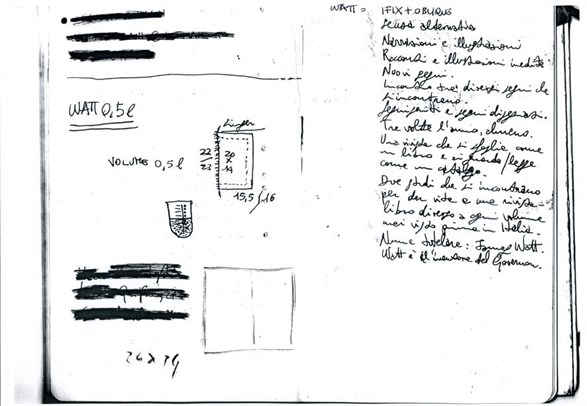 WATT 0,5 l
VOLUMES 0,5 l
22
23
20
x
14
15,5
16
24 x 34
WATT = IFIX + OBLIQUS
senza alternativa
Narrazioni e illustrazioni
Racconti e illustrazioni inedite
Nuovi segni.
Incontro tra diversi segni che
si incontrano.
Segni scritti e segni disegnati.
Tre volte l'anno, almeno.
Una rivista che si sfoglia come
un libro e si guarda/legge
come un catalogo.
Due studi che si incontrano
per dar vita a una rivista-
libro diverso a ogni volume
mai vista prima in Italia.
Nume tutelare: James Watt.
Watt è l'inventore del Governor.